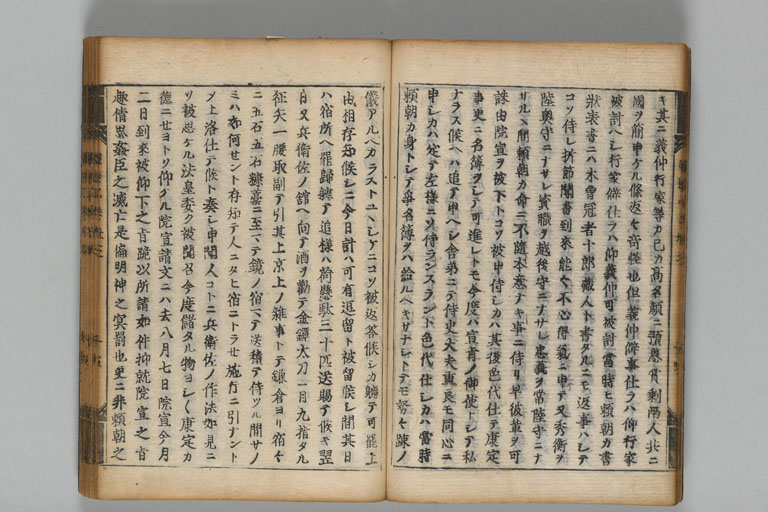 キ其ニ義仲行家等カ己カ高名顔ニ預恩賞剰両人共ニ
國ヲ簡申ケル條返々奇怪也但義仲僻事仕ラハ仰行家
被討ヘシ行家僻仕ラハ仰義仲可被討當時モ頼朝カ書
状表書ニハ木曽冠者十郎蔵人ト書タルニモ返事ハシテ
コソ侍レ折節聞書到来能々不心得氣ニ申テ又秀衡ヲ
陸奥守ニナサレ資職ヲ越後守ニナサレ忠義ヲ常陸守ニナ
サルヽ間頼朝カ命ニ不随本意ナキ事ニ侍リ早彼輩ヲ可
誅由院宣ヲ被下トコソ被申侍シカハ其後色代仕テ康定
事更ニ名簿ヲシテ可進レトモ今度ハ宣旨ノ御使トシテ私
ナラス候ヘハ追テ申ヘシ舎弟ニテ侍史大夫重良モ同心ニ
申シカハ定テ左様ニソ侍ランスラント色代仕シカハ當時
頼朝カ身トシテ爭名簿ヲハ給ルヘキサナレトテモ努々疎ノ
儀アルヘカラストユヽシケニコソ被返答候シカ軈テ可罷上
由相存知候シニ今日計ハ可有逗留ト被留候シ間其日
ハ宿所ヘ罷歸軈テ追様ハ荷懸駄三十匹送賜テ候キ翌
日又兵衛佐ノ館ヘ向テ酒ヲ勸テ金鐔太刀一月九指タル
征矢一腰取副テ引其上京上ノ雑事トテ鎌倉ヨリ宿々
ニ五石五石糠藁ニ至マテ鏡ノ宿マテ送積テ侍ツル間サノ
ミハ如何セント存知テ人ニタヒ宿ニトラせ施行ニ引ナント
ヲ上洛仕テ候ト奏シ申間人コトニ兵衛佐ノ作法如見ニ
ソ被思ケル法皇委ク被聞召今度儲タル物ヨシ〱康定カ
德ニせヨトソ仰タル院宣請文ニハ去八月七日院宣今月
二日到来被仰下之旨跪以所請如件抑就院宣之旨
趣倩思姦臣之滅亡是偏明神之冥罰也更ニ非頼朝之